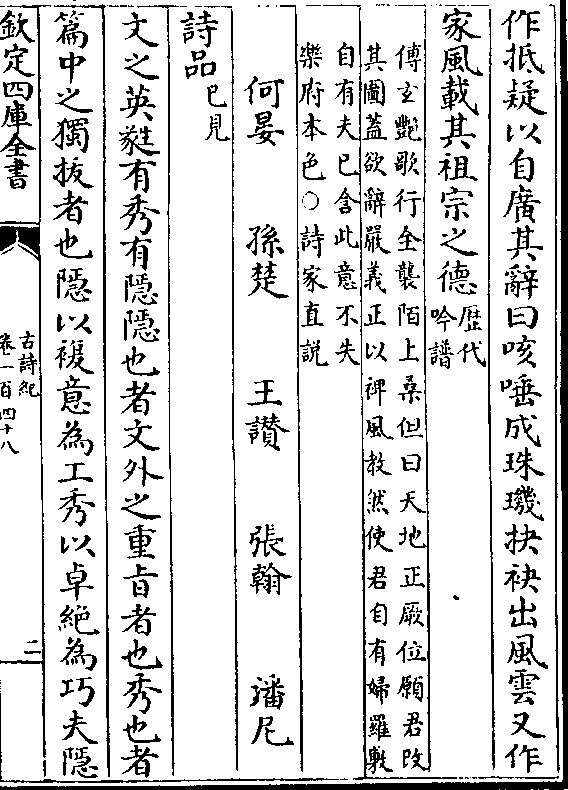 作抵疑以自廣其辭曰咳唾成珠璣抉袂出風雲又作
家風載其祖宗之德歴代吟譜
傅玄艷歌行全襲陌上桑但曰天地正厥位願君改
其圖蓋欲辭嚴義正以裨風教然使君自有婦羅敷
自有夫已含此意不失
樂府本色○詩家直説
何晏 孫楚 王讃 張翰 潘尼
詩品已見
文之英蕤有秀有隱隱也者文外之重㫖者也秀也者
篇中之獨拔者也隱以複意為工秀以卓絶為巧夫隱
欽定四庫全書
古詩紀
卷一百四十八
二